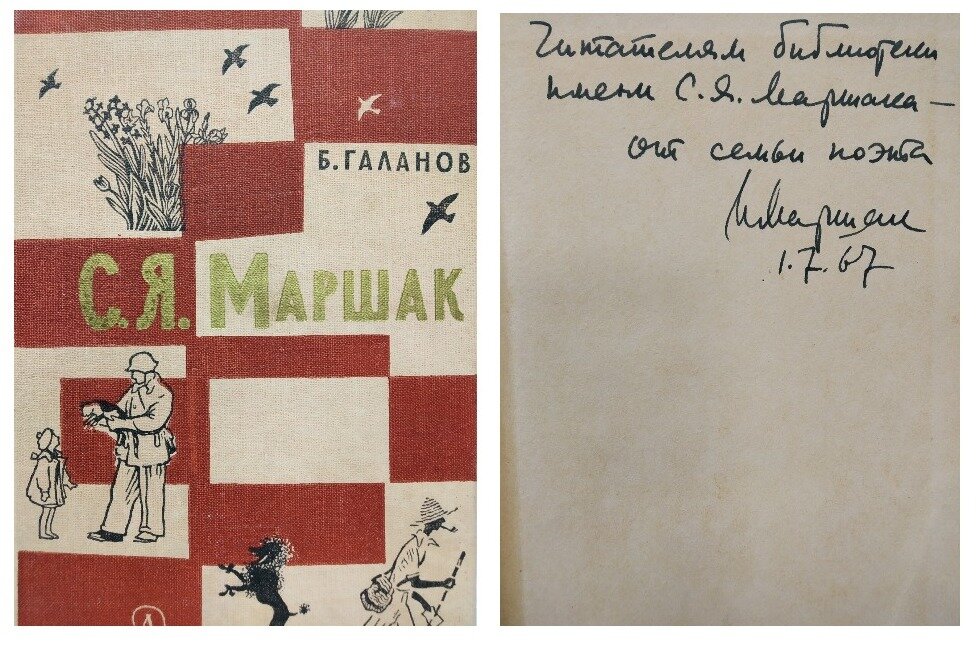 Б. ГАЛАНОВ
С. Я. МАРШАК
Читателям библиотеки
имени С. Я. Маршака —
от семьи поэта
ИМаршак
1. 7. 67